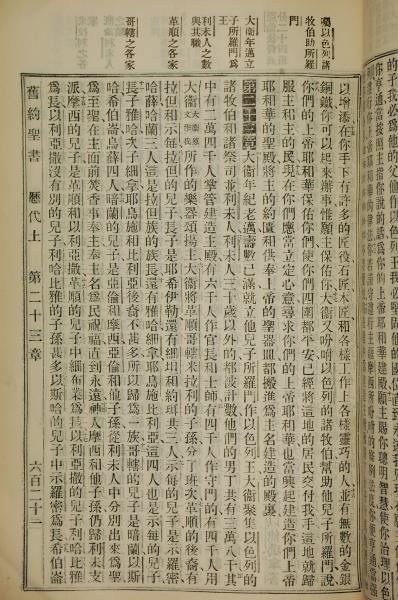 以增添在你手下有許多的匠役石匠木匠和各樣工作上各樣靈巧的人並有無數的金銀
銅鐵你可以起來辦事惟願主保佑你大衞又吩咐以色列的諸牧伯幫助他兒子所羅門說
你們的上帝耶和華保佑你們使你們四圍都平安已經將這地的居民交付我手這地就歸
服主和主的民現在你們應當立定心意尋求你們的上帝耶和華也當興起建造你們上帝
耶和華的聖殿將主的約匱和供奉上帝的聖器皿都搬進為主名建造的殿裏
第二十三章 大衞年紀老邁壽數已滿就立他兒子所羅門作以色列王大衞聚集以色列的
諸牧伯和諸祭司並利未人利未人三十歲以外的都被計數他們的男丁共有三萬八千其
中有二萬四千人掌管建造主殿有六千人作官長和士師有四千人作守門的有四千人用
大衞所作的樂器頌揚主大衞將革順哥轄米拉利的子孫分了班次革順的後裔有
拉但和示每拉但的兒子長子是耶希伊勒還有細坦和約珥共三人示每的兒子是示羅密
哈薛哈蘭三人這是拉但族的族長還有雅哈細拿耶烏施比利亞這四人也是示每的兒子
長子雅哈次子細拿耶烏施和比利亞後裔不甚多所以歸為一族哥轄的兒子是暗蘭以斯
哈希伯崙烏薛四人暗蘭的兒子是亞倫和摩西亞倫和他子孫從利未人中分別出來為聖
為至聖在主面前焚香事奉主奉主名為民祝福直到永遠神人摩西和他子孫仍歸利未支
派摩西的兒子是革順和以利亞撒革順的兒子中細布業為長以利亞撒的兒子利哈比雅
為長以利亞撒沒有別的兒子利哈比雅的子孫甚多以斯哈的兒子中示羅密為長希伯崙
囑以色列諸
牧伯助所羅
門
大衞年邁立
子所羅門為
王
利未人之數
與其職
革順之各家
哥轄之各家
舊約聖書 歷代上 第二十三章 六百二十一